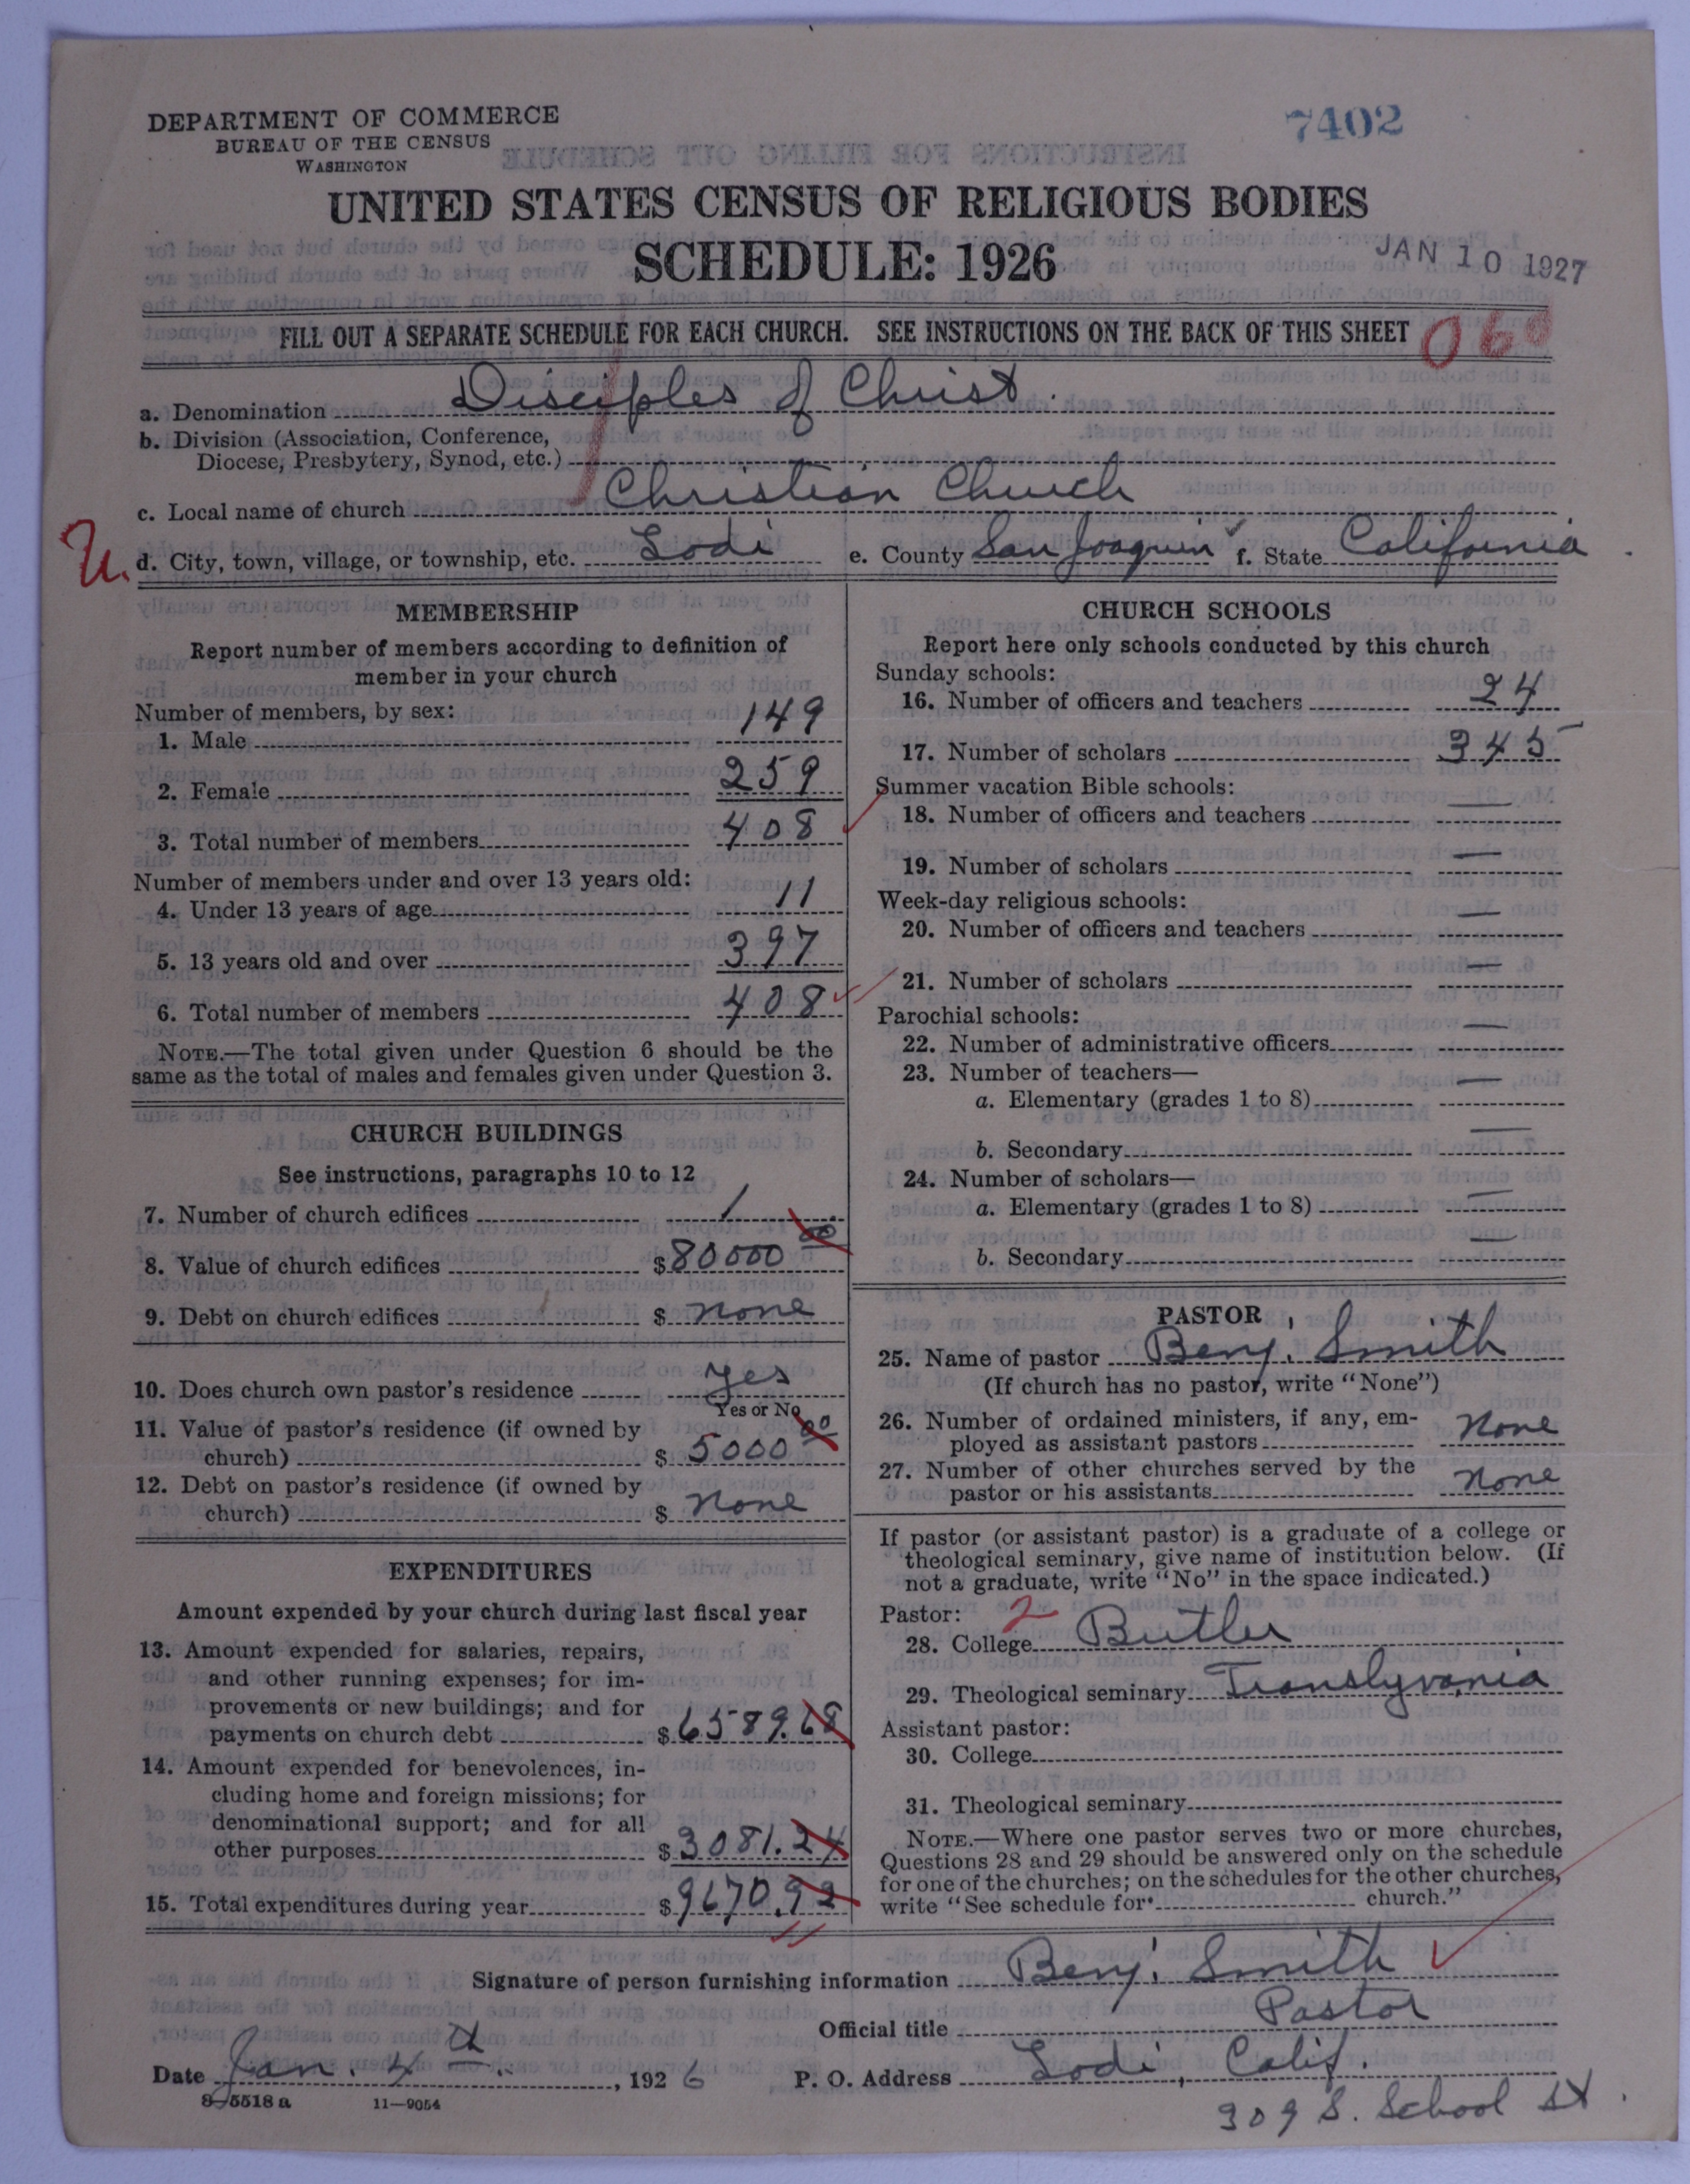 DEPARTMENT OF COMMERCE
BUREAU OF THE CENSUS
WASHINGTON
7402
UNITED STATES CENSUS OF RELIGIOUS BODIES
SCHEDULE: 1926
JAN 10 1927
FILL OUT A SEPARATE SCHEDULE FOR EACH CHURCH. SEE INSTRUCTIONS ON THE BACK OF THIS SHEET
060
a. Denomination Disciples of Christ.
b. Division (Association, Conference,
Diocese, Presbytery, Synod, etc.)
c. Local name of church Christian Church
U. d. City, town, village, or township, etc. Lodi e. County San Joaquin f. State California
MEMBERSHIP
Report number of members according to definition of
member in your church
Number of members, by sex:
1. Male 149
2. Female 259
3. Total number of members 408
Number of members under and over 13 years old:
4. Under 13 years of age 11
5. 13 years old and over 397
6. Total number of members 408
NOTE.—The total given under Question 6 should be the
same as the total of males and females given under Question 3.
CHURCH BUILDINGS
See instructions, paragraphs 10 to 12
7. Number of church edifices 1
8. Value of church edifices $ 80000 00
9. Debt on church edifices $ none
10. Does church own pastor's residence yes
Yes or No
11. Value of pastor's residence (if owned by
church) $ 5000 00
12. Debt on pastor's residence (if owned by
church) $ none
EXPENDITURES
Amount expended by your church during last fiscal year
13. Amount expended for salaries, repairs,
and other running expenses; for im-
provements or new buildings; and for
payments on church debt $ 6589.68
14. Amount expended for benevolences, in-
cluding home and foreign missions; for
denominational support; and for all
other purposes $ 3081.24
15. Total expenditures during year $ 9670.92
CHURCH SCHOOLS
Report here only schools conducted by this church
Sunday schools:
16. Number of officers and teachers 24
17. Number of scholars 345
Summer vacation Bible schools:
18. Number of officers and teachers —
19. Number of scholars —
Week-day religious schools:
20. Number of officers and teachers —
21. Number of scholars —
Parochial schools:
22. Number of administrative officers —
23. Number of teachers—
a. Elementary (grades 1 to 8) —
b. Secondary —
24. Number of scholars—
a. Elementary (grades 1 to 8) —
b. Secondary —
PASTOR
25. Name of pastor Benj. Smith
(If church has no pastor, write "None")
26. Number of ordained ministers, if any, em-
ployed as assistant pastors None
27. Number of other churches served by the
pastor or his assistants None
If pastor (or assistant pastor) is a graduate of a college or
theological seminary, give name of institution below. (If
not a graduate, write "No" in the space indicated.)
Pastor: 2
28. College Butler
29. Theological seminary Translyvania
Assistant pastor:
30. College
31. Theological seminary
NOTE.—Where one pastor serves two or more churches,
Questions 28 and 29 should be answered only on the schedule
for one of the churches; on the schedules for the other churches,
write "See schedule for church."
Signature of person furnishing information Benj. Smith
Official title Pastor
Date Jan. 4th, 1926 P. O. Address Lodi, Calif.
8-5518 a 11—9054
309 S. School St.